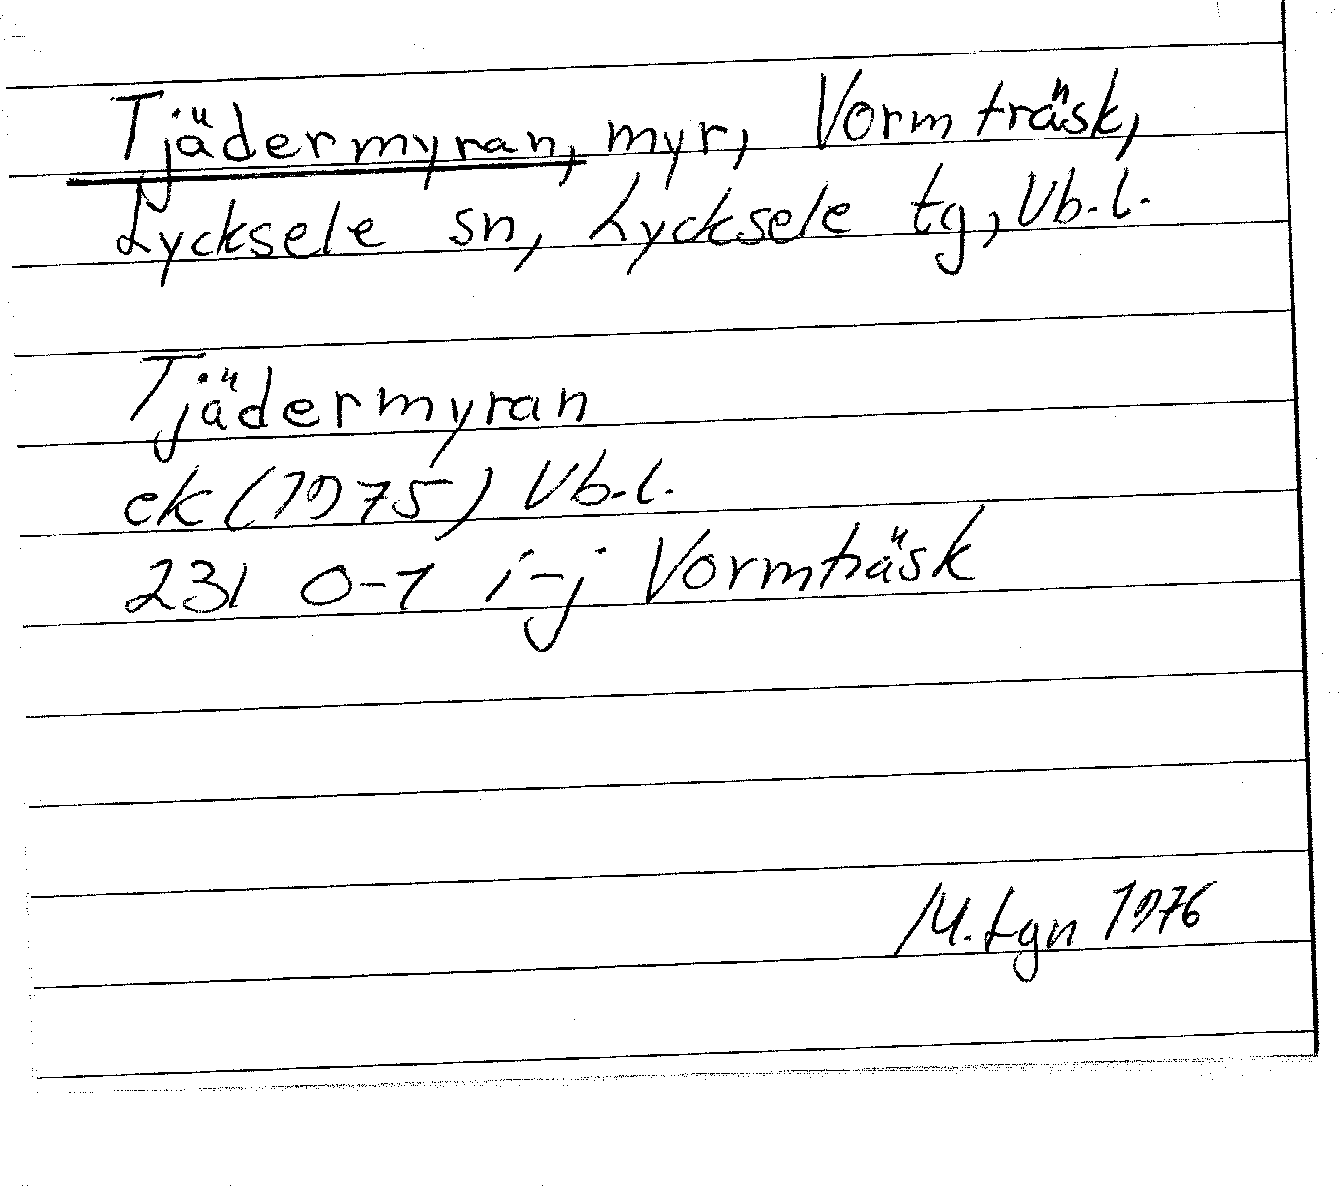 Tjädermyran, myr, Vormträsk,
Lycksele sn, Lycksele tg, Vb.l.
Tjädermyran
ek (1975) Vb.l.
231 0-1 i-j Vormträsk
M. Lgn 1976